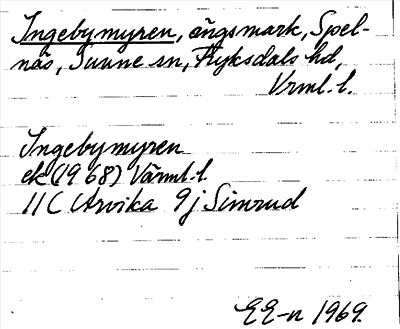 Ingebymyren, ängsmark, Spel-
näs, Sunne sn, Fryksdals hd,
Vrml. l.
Ingebymyren
ek (1968) Värml. l.
11C Arvika 9j Simrud
EE-n 1969.